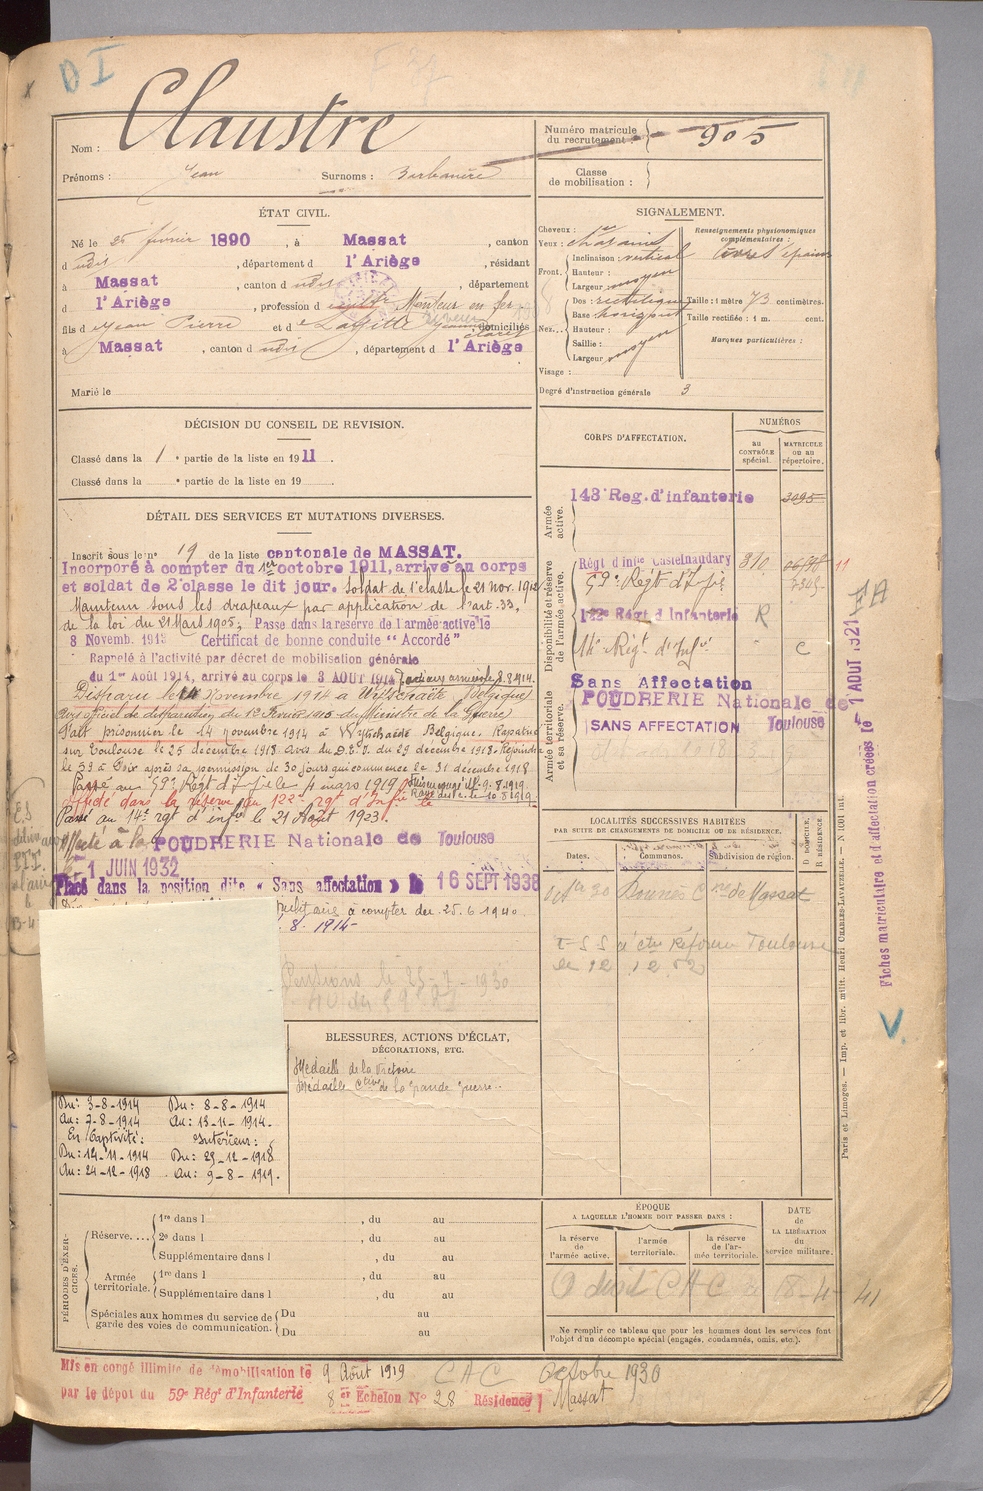 D I
Nom : Claustre
Numéro matricule du recrutement : 905
Prénoms : Jean Surnoms :
Classe de mobilisation :
ÉTAT CIVIL.
Né le 25 février 1890, à Massat, canton
d udit, département d l'Ariège, résidant
à Massat, canton d udit, département
d l'Ariège, profession d Monteur en fer
fils d e Jean Pierre et d e domiciliés
à Massat, canton d udit, département d l'Ariège
Marié le
SIGNALEMENT.
Cheveux :
Yeux : châtains
Front. Inclinaison : vertical
Hauteur : moyen
Largeur
Nez. Dos : rectiligne
Base : horizont
Hauteur :
Saillie : moyen
Largeur
Visage :
Degré d'instruction générale 3
Renseignements physionomiques complémentaires :
épais
Taille : 1 mètre 73 centimètres.
Taille rectifiée : 1 m. cent.
Marques particulières :
DÉCISION DU CONSEIL DE REVISION.
Classé dans la 1 e partie de la liste en 1911.
Classé dans la e partie de la liste en 19
DÉTAIL DES SERVICES ET MUTATIONS DIVERSES.
Inscrit sous le n° 19 de la liste cantonale de MASSAT.
Incorporé à compter du 1er octobre 1911, arrivé au corps
et soldat de 2e classe le dit jour. Soldat de 1e classe le 21 nov. 1912
Maintenu sous les drapeaux par application de l'art. 33,
de la loi du 21 Mars 1905; Passé dans la réserve de l'armée active le
8 Novemb. 1913 Certificat de bonne conduite "Accordé"
Rappelé à l'activité par décret de mobilisation générale
du 1er Août 1914, arrivé au corps le 3 AOUT 1914 le 8.8.1914.
Disparu le 14 Novembre 1914 à Wytschaete (Belgique)
avis officiel de disparition du 1er Février 1915 du Ministre de la Guerre
Fait prisonnier le 14 novembre 1914 à Wytschaete Belgique. Rapatrié
sur Toulouse le 25 décembre 1918 avis du D.C.I. du 29 décembre 1918. Rejoindra
le 59 à Foix après sa permission de 30 jours qui commence le 31 décembre 1918
Passé au 59e Régt d'Ifie le 4 mars 1919
Affecté dans la réserve au 122e rgt d'Inf
Passé au 14e rgt d'infie le 21 Août 1923.
Affecté à la POUDRERIE Nationale de Toulouse
1 JUIN 1932
Placé dans la position dite « Sans affectation » le 16 SEPT 1938
militaire à compter du 25.6.1940.
.8.1914-
Pensions le 25-7-1930
CORPS D'AFFECTATION.
NUMÉROS
AU CONTRÔLE spécial.
MATRICULE ou au répertoire.
Armée active.
143e Reg. d'infanterie 3095
Disponibilité et réserve de l'armée active.
Régt d'Infie Castelnaudary 310
59e Régt d'Ifie
122e Régt d'Infanterie R
14e Régt d'Infie C
Armée territoriale et sa réserve.
Sans Affectation
POUDRERIE Nationale de
Toulouse
SANS AFFECTATION
LOCALITÉS SUCCESSIVES HABITÉES
PAR SUITE DE CHANGEMENTS DE DOMICILE OU DE RÉSIDENCE.
Dates. Communes. Subdivision de région. D DOMICILE, R RÉSIDENCE.
Cne de Massat
Réforme Toulouse
BLESSURES, ACTIONS D'ÉCLAT,
DÉCORATIONS, ETC.
Médaille de la Victoire
Médaille Ctive de la grande guerre.
Du : 3-8-1914 Du : 8-8-1914
Au : 7-8-1914 Au : 13-11-1914.
En Captivité : Intérieur :
Du : 14-11-1914 Du : 25-12-1918
Au : 24-12-1918 Au : 9-8-1919.
PÉRIODES D'EXERCICES.
Réserve.... 1re dans l , du au
2e dans l , du au
Supplémentaire dans l , du au
Armée territoriale. 1re dans l , du au
Supplémentaire dans l , du au
Spéciales aux hommes du service de garde des voies de communication. Du au
Du au
ÉPOQUE
A LAQUELLE L'HOMME DOIT PASSER DANS :
la réserve de l'armée active.
l'armée territoriale.
la réserve de l'armée territoriale.
DATE de LA LIBÉRATION du service militaire.
O droit CAC
Ne remplir ce tableau que pour les hommes dont les services font
l'objet d'un décompte spécial (engagés, condamnés, omis, etc.).
Mis en congé illimité de démobilisation le 9 Août 1919 CAC Octobre 1930
par le dépôt du 59e Régt d'Infanterie 8er Échelon N° 28 Résidence Massat
Fiches matriculaire et d'affectation créées le 1 AOUT 1921
V.
Paris et Limoges. — Imp. et libr. milit. Henri CHARLES-LAVAUZELLE.